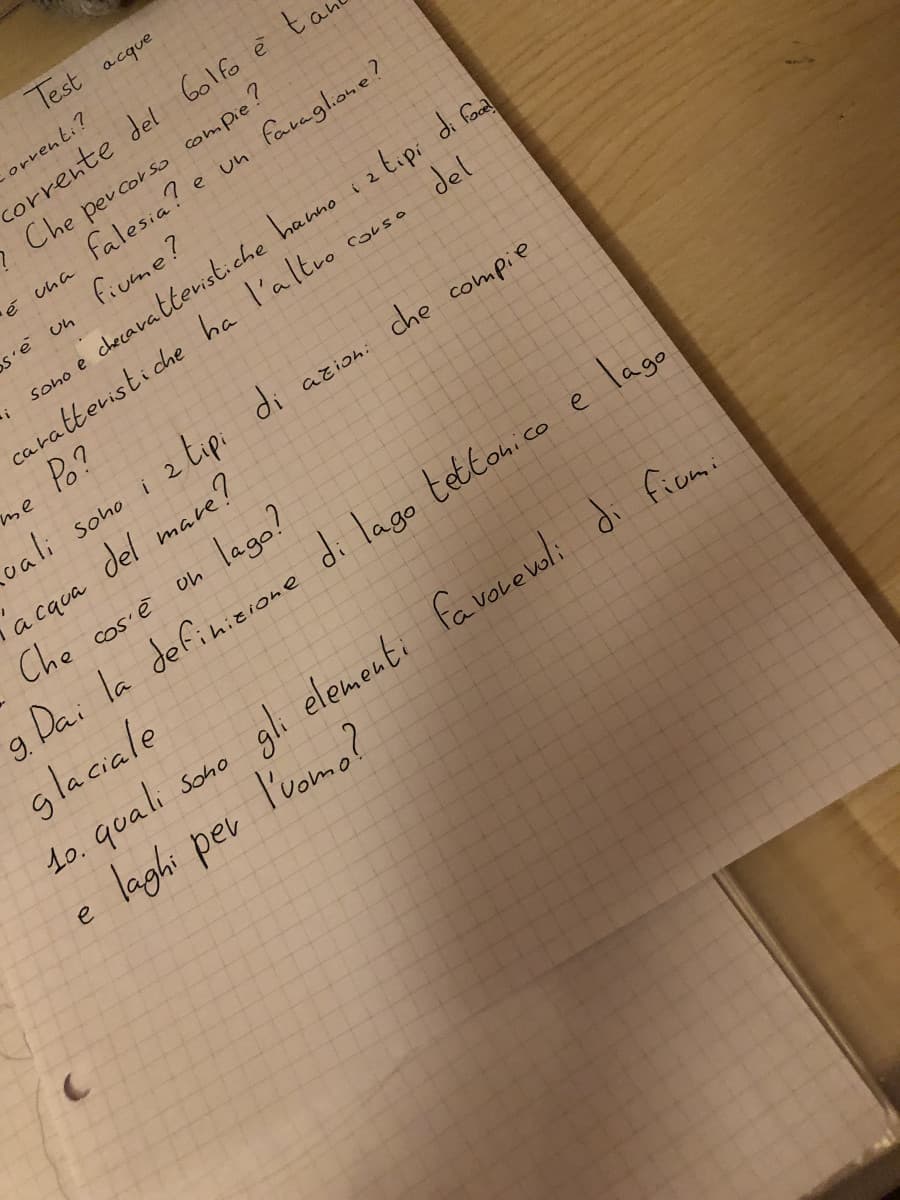 Test acque
correnti?
corrente del Golfo è
? Che percorso compie?
è una falesia? e un faraglione?
os'è un fiume?
i sono e checaratteristiche hanno i 2 tipi di foce?
caratteristiche ha l'altro corso del
me Po?
uali sono i 2 tipi di azioni che compie
l'acqua del mare?
Che cos'è un lago?
9. Dai la definizione di lago tettonico e lago
glaciale
10. quali sono gli elementi favorevoli di fiumi
e laghi per l'uomo?